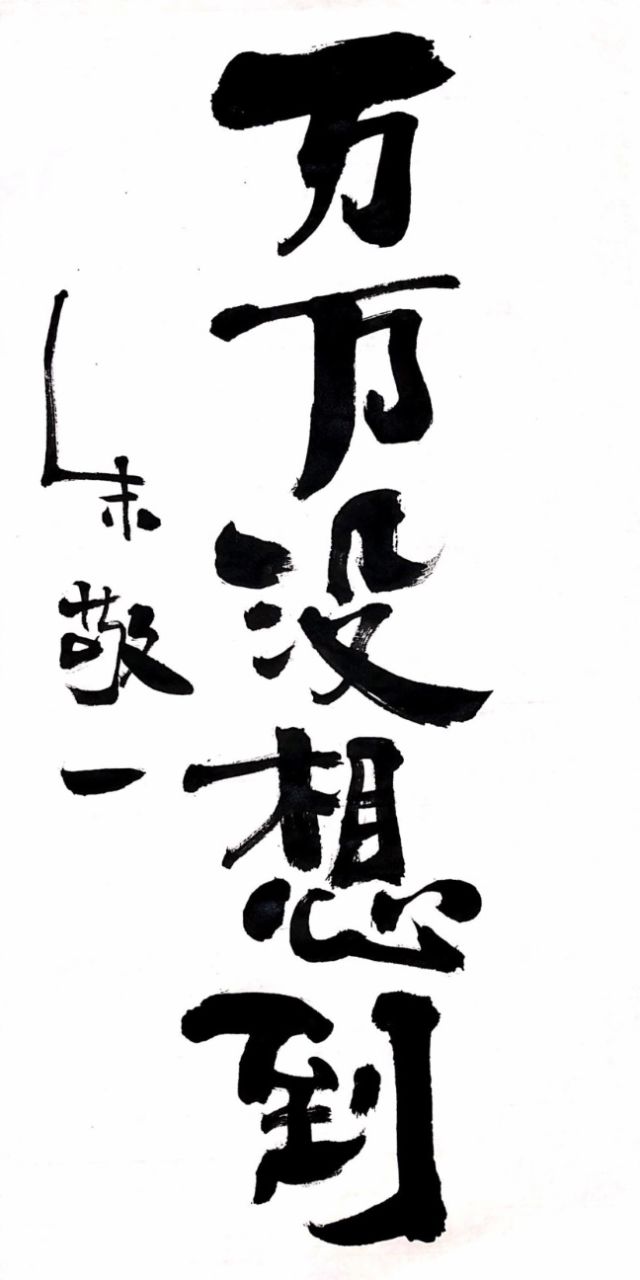 万万没想到
乙未敬一